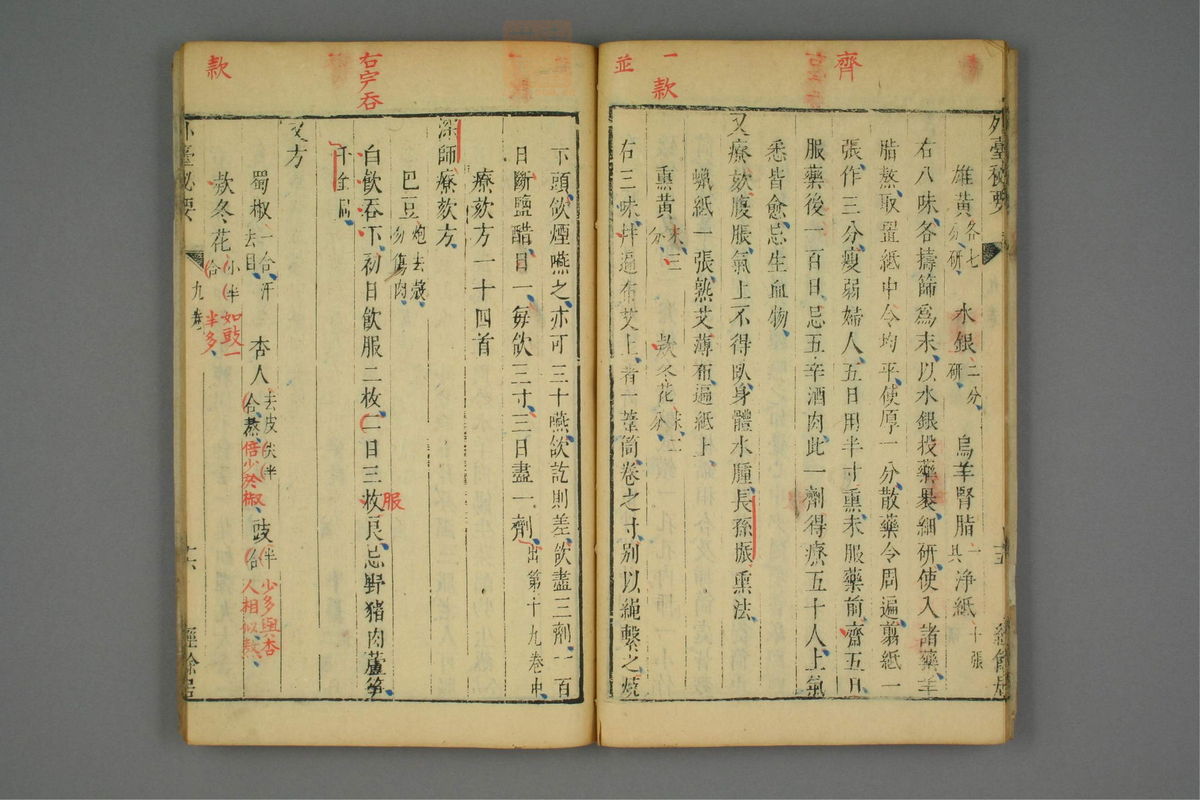 外臺秘要
雄黃各七分研 水銀二分研 烏羊腎脂一具 淨紙十張
右八味各擣篩爲末以水銀投藥裹細研使入諸藥羊
脂熬取置紙中令均平使厚一分散藥令周遍剪紙一
張作三分瘦弱婦人五日用半寸熏未服藥前齋五日
服藥後一百日忌五辛酒肉此一劑得療五十人上氣
悉皆愈忌生血物
又療欬腹脹氣上不得臥身體水腫長孫振熏法
蠟紙一張熟艾薄布遍紙上
熏黃末三分 款冬花末二分
右三味拌遍布艾上着一葦筒卷之寸別以繩繫之燒
齊
一款
並
下頭欱煙嚥之亦可三十嚥欱訖則差欱盡三劑一百
日斷鹽醋日一每欱三寸三日盡一劑出第十九卷中
療欬方一十四首
深師療欬方
巴豆炮去殼勿傷肉
白飲吞下初日飲服二枚二日三枚良忌野豬肉蘆筍
服
千金
又方
蜀椒一合汗去目 杏人去皮尖半合熬 豉半合
款冬花小半合
倍少於椒
少多與杏人相似熬
如豉一半多
外臺秘要
九卷
十六
經餘居
右字吞
款